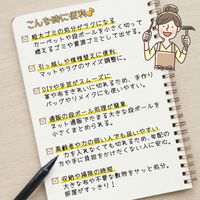 こんな時に便利♪
粗大ゴミの処分がラクになる
カーペットや段ボールを小さく切って
燃えるゴミや資源ゴミとして出せる。
引っ越しや模様替えに便利
マットやラグのサイズ調整に。
DIYや手芸がスムーズに
革や布をきれいに切れるため、手作り
バッグやリメイクにも使いやすい。
通販の段ボール処理が簡単
ネット通販でたまる大きな段ボールを
小さくまとめられる。
高齢者や力の弱い人でも扱いやすい
力を入れなくても切れるため、年配の
方や手に負担をかけたくない人に安心。
収納や掃除の時短
大きな布や不要な敷物をサッと処分。
部屋がすっきり!